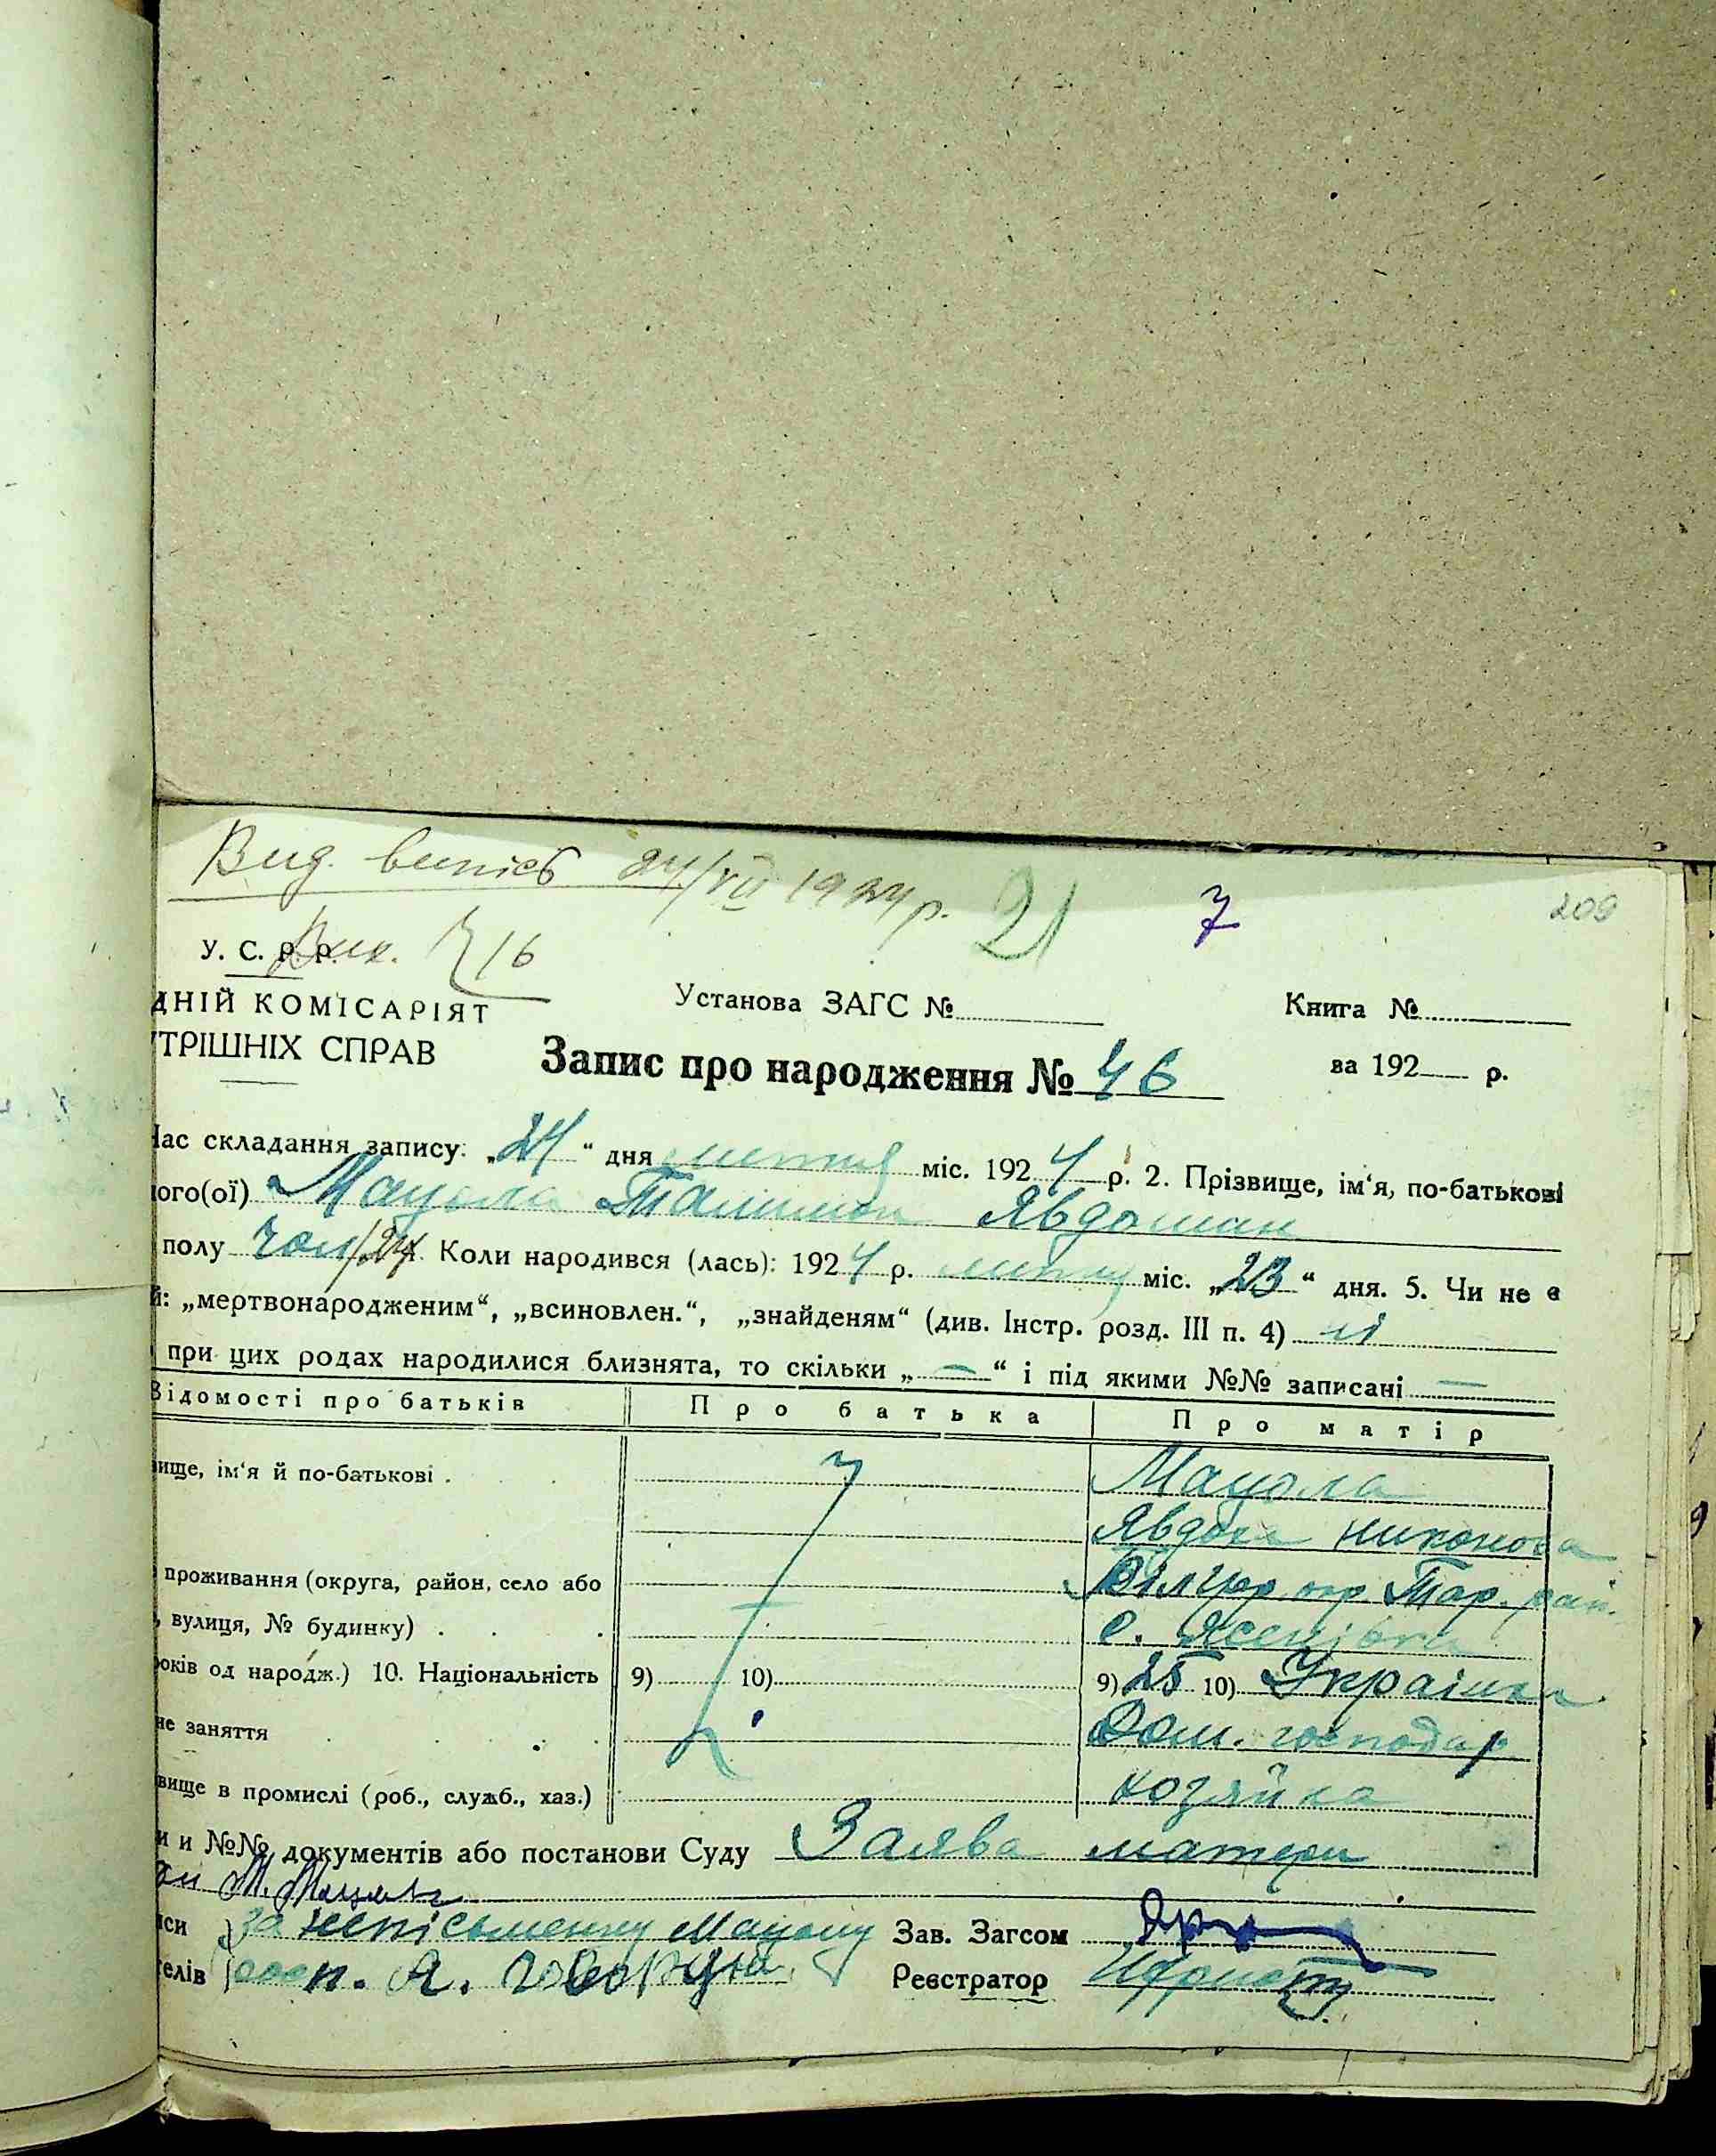 Вид. випісь 24/VII 1924 р. 21 7 209
У. С. Р. Р. Вик. 16
ДНІЙ КОМІСАРІЯТ Установа ЗАГС № Книга №
ТРІШНІХ СПРАВ Запис про народження № 46 за 192 р.
Час складання запису: „24“ дня лютня міс. 1924 р. 2. Прізвище, ім'я, по-батькові
ного(ої) Мацола Явдошин
полу чол Коли народився (лась): 1924 р. лютня міс. „23“ дня. 5. Чи не є
й: „мертвонародженим“, „всиновлен.“, „знайденям“ (див. Інстр. розд. III п. 4) ні
при цих родах народилися близнята, то скільки „—“ і під якими №№ записані —
Відомості про батьків Про батька Про матір
вище, ім'я й по-батькові . Мацола
Явдоха Никонова
проживання (округа, район, село або Білцер. окр. Тар. рай.
, вулиця, № будинку) . . . с.
років од народж.) 10. Національність 9) 10) 9) 25 10) Українка
не заняття Дом. господар
вище в промислі (роб., служб., хаз.) хозяйка
и и №№ документів або постанови Суду Заява матери
М. Мацола
иси за неписьменну Мацолу Зав. Загсом
телів росп. А. Реєстратор